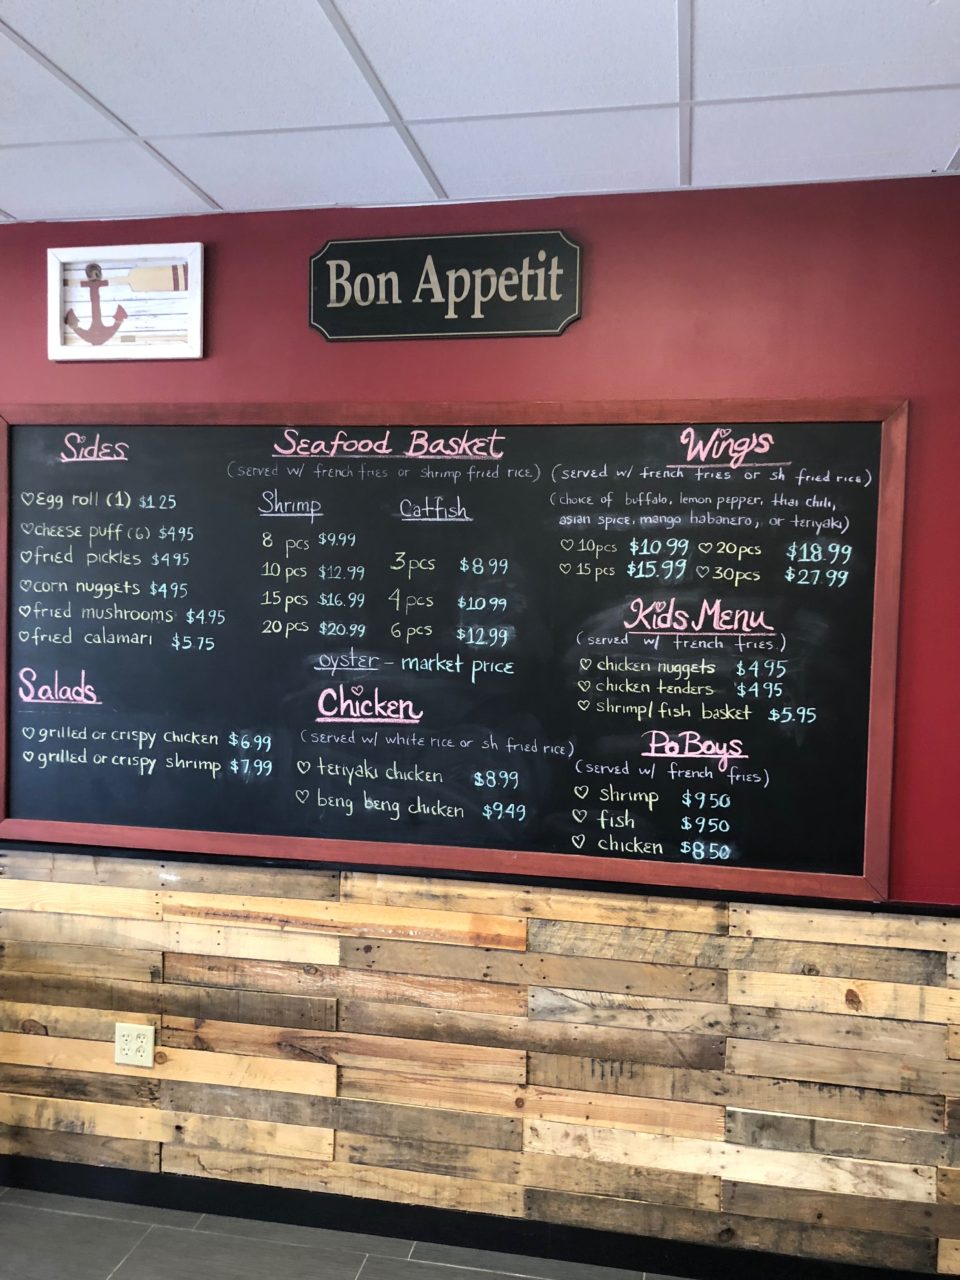 Bon Appetit
Sides
♡Egg roll (1) $1.25
♡cheese puff (6) $4.95
♡fried pickles $4.95
♡corn nuggets $4.95
♡fried mushrooms $4.95
♡fried calamari $5.75
Salads
♡grilled or crispy chicken $6.99
♡grilled or crispy shrimp $7.99
Seafood Basket
(served w/ french fries or shrimp fried rice)
Shrimp
8 pcs $9.99
10 pcs $12.99
15 pcs $16.99
20 pcs $20.99
Catfish
3 pcs $8.99
4 pcs $10.99
6 pcs $12.99
oyster - market price
Chicken
(served w/ white rice or sh fried rice)
♡ teriyaki chicken $8.99
♡ beng beng chicken $9.49
Wing's
(served w/ french fries or sh fried rice)
(choice of buffalo, lemon pepper, thai chili,
asian spice, mango habanero, or teriyaki)
♡ 10pcs $10.99 ♡ 20pcs $18.99
♡ 15pcs $15.99 ♡ 30pcs $27.99
Kids Menu
(served w/ french fries.)
♡ chicken nuggets $4.95
♡ chicken tenders $4.95
♡ shrimp/fish basket $5.95
PoBoys
(served w/ french fries)
♡ shrimp $9.50
♡ fish $9.50
♡ chicken $8.50